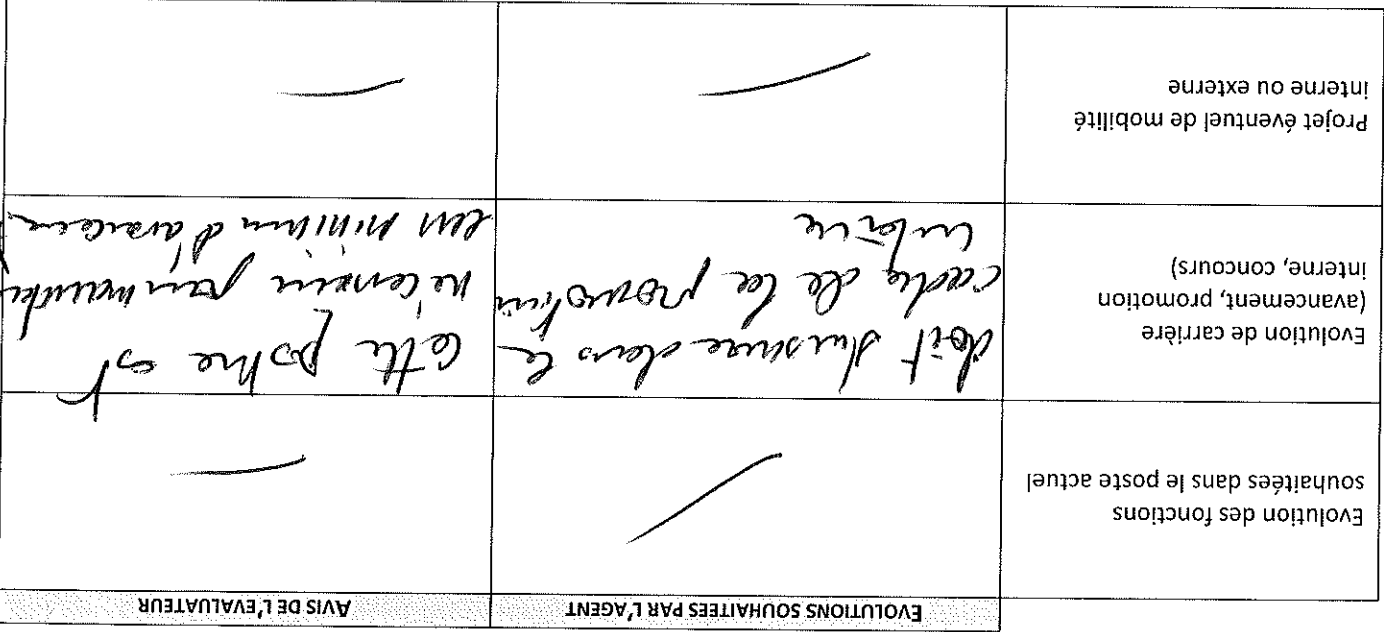 EVOLUTIONS SOUHAITEES PAR L'AGENT
AVIS DE L'EVALUATEUR
Evolution des fonctions
souhaitées dans le poste actuel
Evolution de carrière
(avancement, promotion
interne, concours)
doit s'inscrire dans le
cadre de la promotion
interne
cette est
nécessaire
un minimum
Projet éventuel de mobilité
interne ou externe